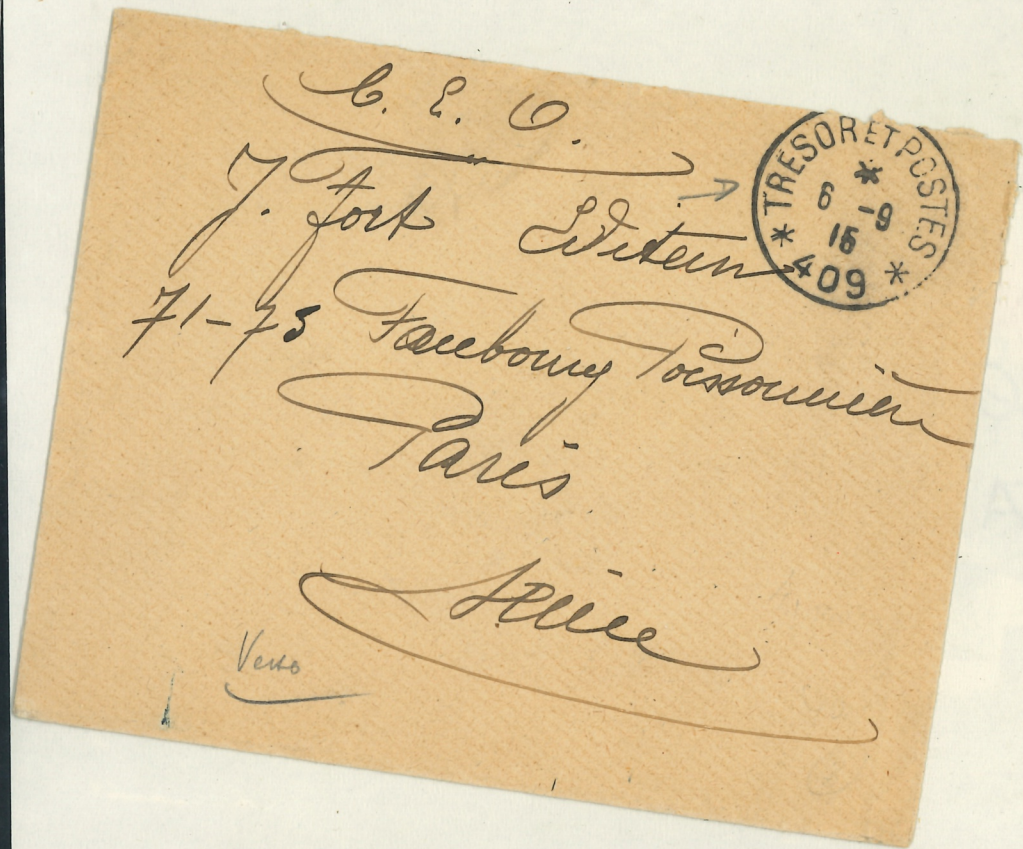 C. E. O.
J. Fort
71-73 Faubourg Poissonnière
Paris
Seine
Verso
* TRÉSOR ET POSTES *
*
6 -9
15
409